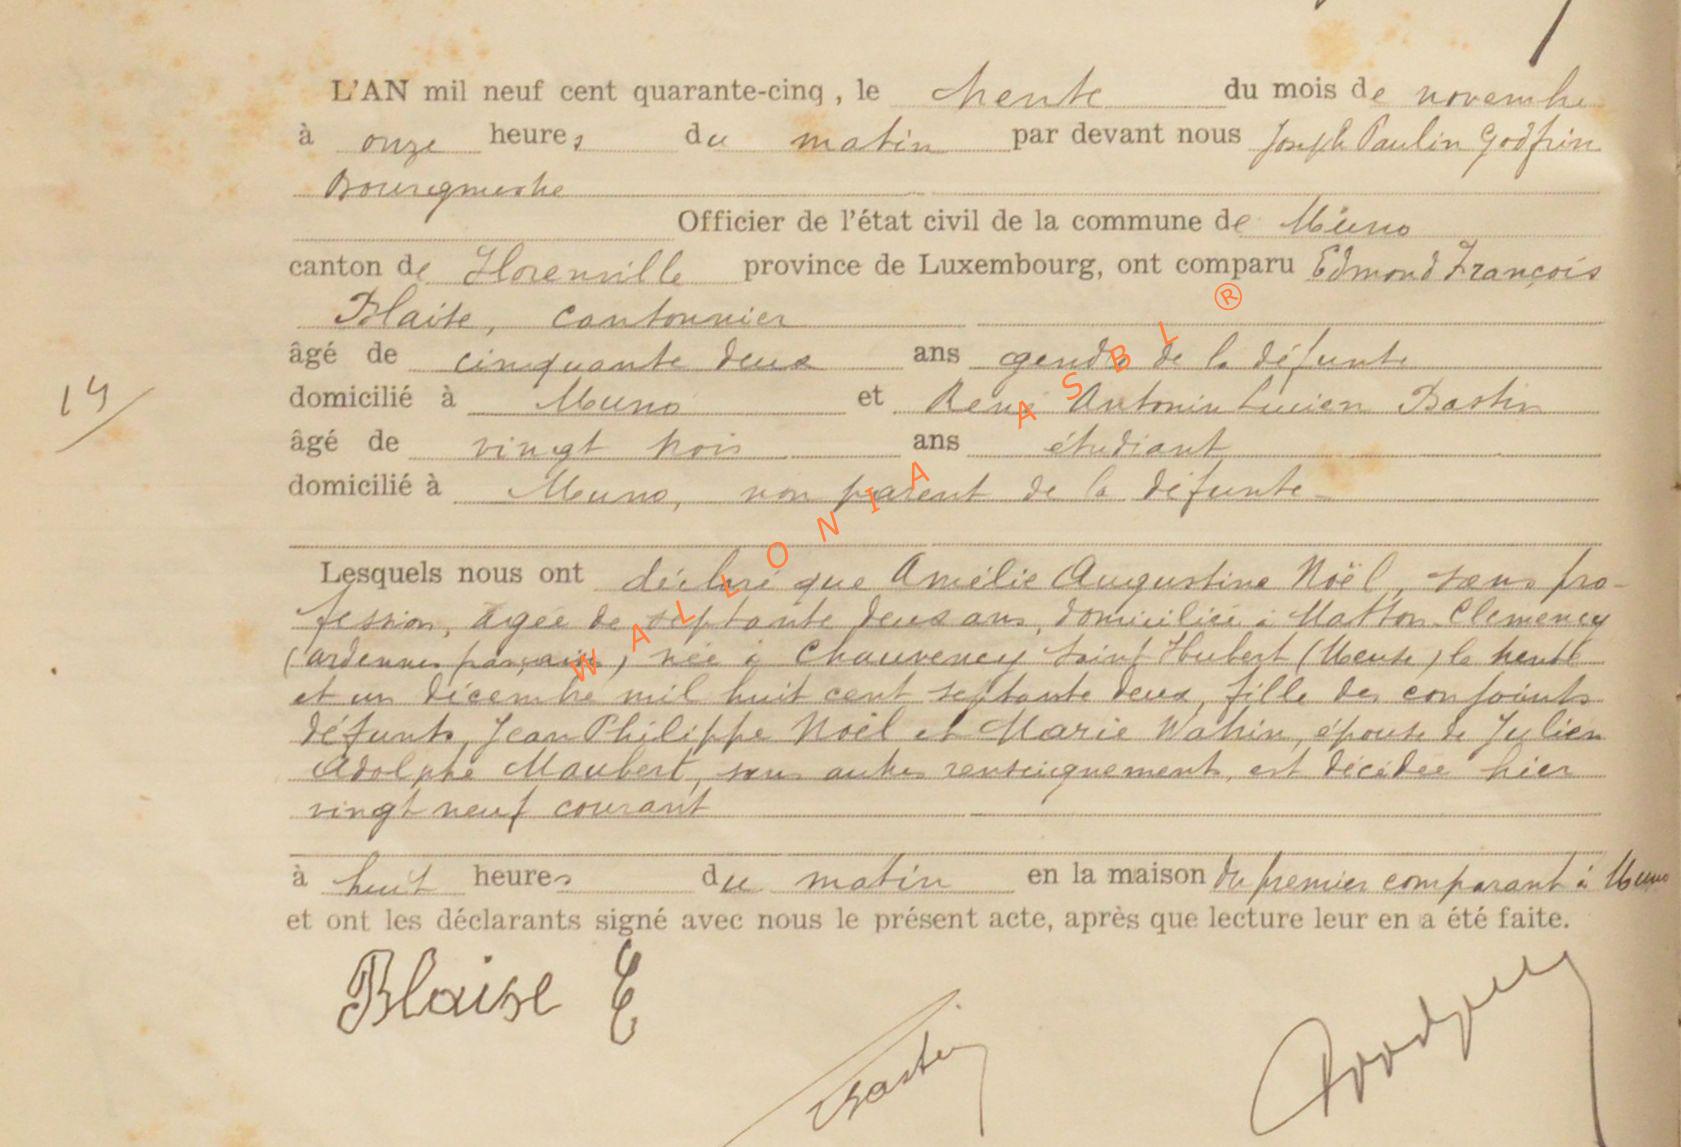 L'AN mil neuf cent quarante-cinq, le trente du mois de novembre
à onze heures du matin par devant nous Joseph Paulin Godfrin
Bourgmestre
Officier de l'état civil de la commune de Muno
canton de Florenville province de Luxembourg, ont comparu Edmond François
Blaise, cantonnier
âgé de cinquante deux ans gendre de la défunte
domicilié à Muno et René Antonin Lucien Bastin
âgé de vingt trois ans étudiant
domicilié à Muno, non parent de la défunte
Lesquels nous ont déclaré que Amélie Augustine Noël, sans pro-
fession, âgée de septante deux ans, domiciliée à Matton Clemency
(ardennes françaises), née à Chauvency Saint Hubert (Meuse) le trente
et un décembre mil huit cent septante deux, fille des conjoints
défunts, Jean Philippe Noël et Marie Watrin, épouse de Julien
Adolphe Maubert, sans autres renseignements, est décédée hier
vingt neuf courant
à huit heures du matin en la maison du premier comparant à Muno
et ont les déclarants signé avec nous le présent acte, après que lecture leur en a été faite.
14
Blaise E
Bastin
WALLONIA ASBL ®